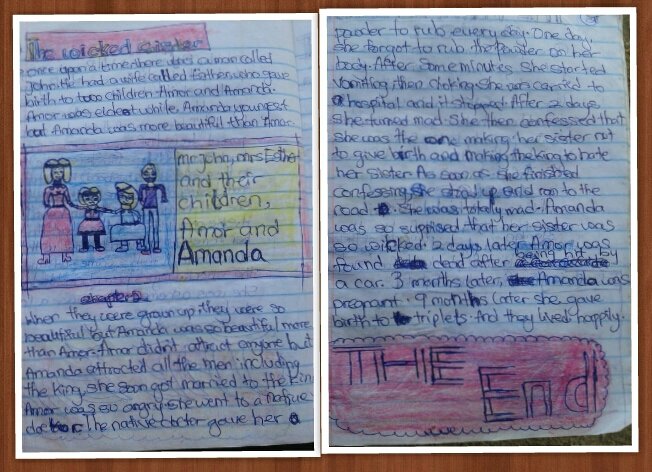 The wicked sister
once upon a time there was a man called
John. He had a wife called Esther who gave
birth to two children Amor and Amanda.
Amor was eldest while Amanda youngest
but Amanda was more beautiful than Amor.
mr john, mrs Esther
and their
children,
Amor and
Amanda
chapter 2
When they were grown up, they were so
beautiful but Amanda was so beautiful more
than Amor. Amor didn't attract anyone but
Amanda attracted all the men including
the king. she soon got married to the king
Amor was so angry she went to a native
doctor. The native doctor gave her a
powder to rub every day. One day
she forgot to rub the powder on her
body. After some minutes she started
vomitting then choking. She was carried to
a hospital and it stopped. After 2 days
she turned mad. She then confessed that
she was the one making her sister not
to give birth and making the king to hate
her sister. As soon as she finished
confessing, she stood up and ran to the
road. She was totally mad. Amanda
was so suprised that her sister was
so wicked. 2 days later Amor was
found dead after being hit by
a car. 3 months later, Amanda was
pregnant. 9 months later she gave
birth to triplets. And they lived happily.
THE
End